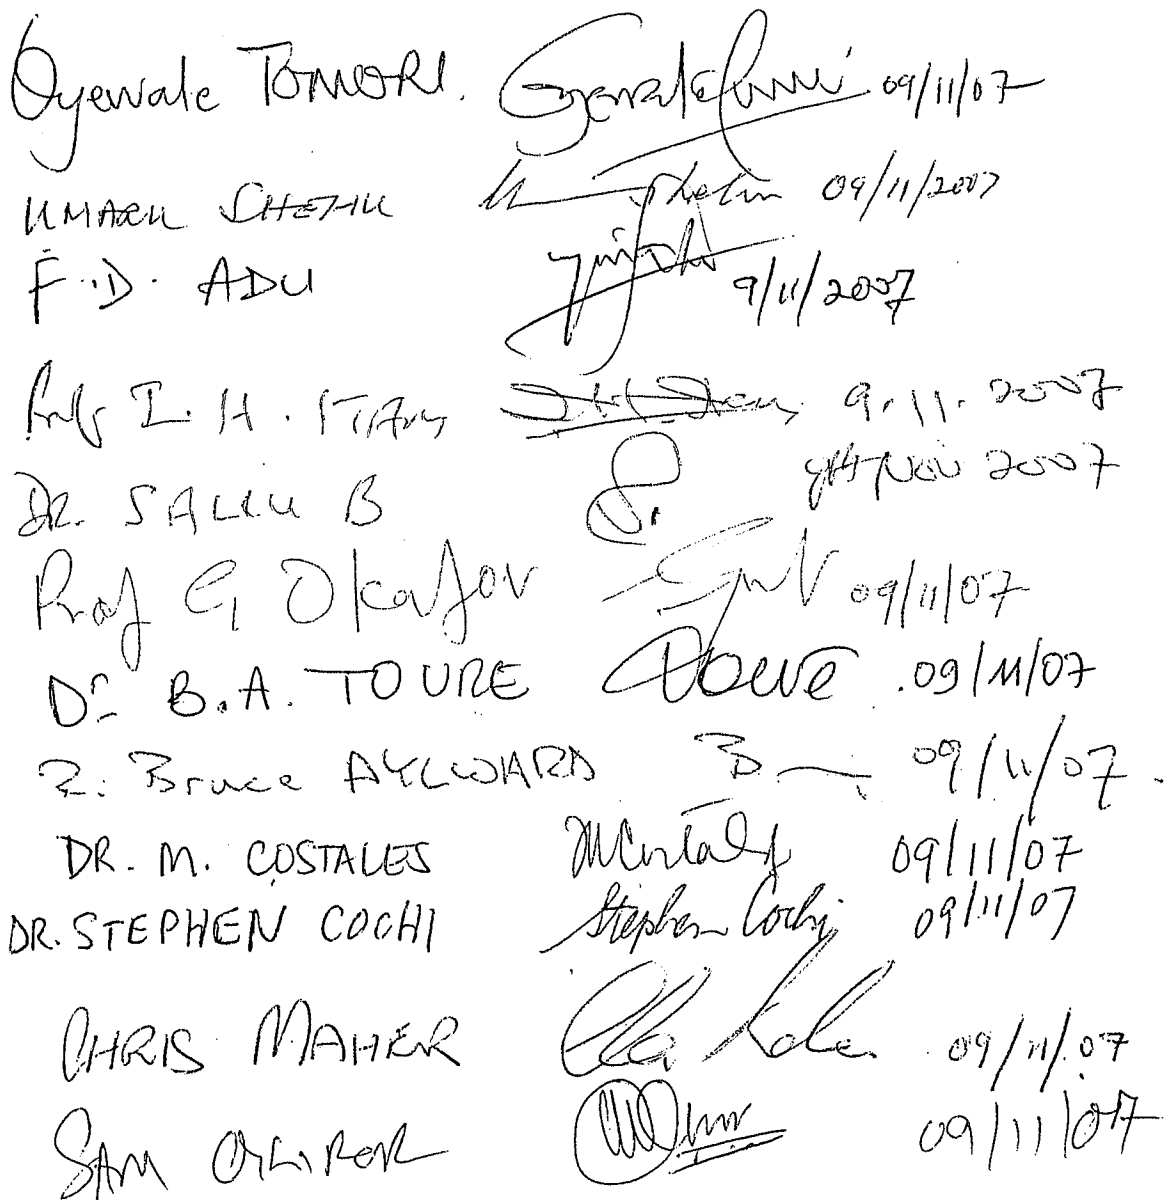 Oyewale TOMORI. Oyewale Tomori 09/11/07
UMARU SHEHU U Shehu 09/11/2007
F.D. ADU 9/11/2007
Prof I. H. 9.11.2007
DR. SALLU B 9th Nov 2007
Prof G Okafor 09/11/07
Dr B.A. TOURE Toure .09/11/07
R. Bruce AYLWARD B 09/11/07.
DR. M. COSTALES MCostales 09/11/07
DR. STEPHEN COCHI Stephen Cochi 09/11/07
CHRIS MAHER 09/11/07
SAM 09/11/07